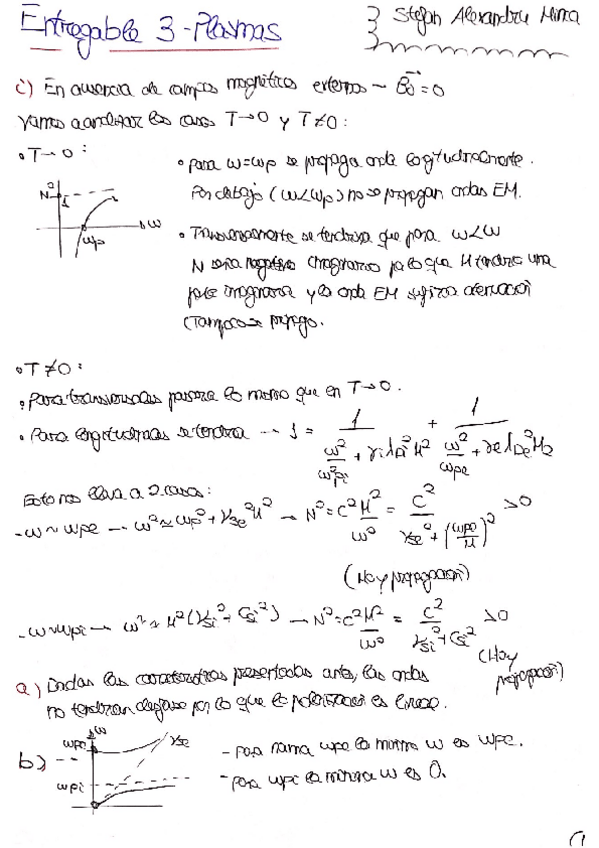 Entregable 3 - Plasmas
Stefan Alexandru Mirna
c) En ausencia de campos magnéticos externos → B₀ = 0
Vamos a analizar los casos T→0 y T≠0:
• T→0:
N²
1
ω
ωp
• para ω=ωp se propaga onda longitudinalmente.
Por debajo (ω<ωp) no se propagan ondas EM.
• Transversalmente se tendría que para ω<ω
N sería negativo imaginario por lo que K tendría una
parte imaginaria y la onda EM sufriría atenuación
(Tampoco se propaga.
• T≠0:
• Para transversales pasaría lo mismo que en T→0.
• Para longitudinales se tendría → 1 = 1/(ω²/ω²pi + γi λDi² K²) + 1/(ω²/ωpe + γe λDe² K2)
Esto nos lleva a 2 casos:
- ω ~ ωpe → ω² ≈ ωp² + Vse² K² → N² = C² K²/ω² = C²/(Vse² + (ωpe/K)²) > 0
(Hay propagación)
- ω ~ ωpi → ω² ≈ K² (Vsi² + Csi²) → N² = C² K²/ω² = C²/(Vsi² + Cs²) > 0
(Hay propagación)
a) Dadas las características presentadas antes, las ondas
no tendrían desfase por lo que la polarización es lineal.
b)
ω
ωpe
Vse
ωpi
- para rama ωpe la mínima ω es ωpe.
- para ωpi la mínima ω es 0.